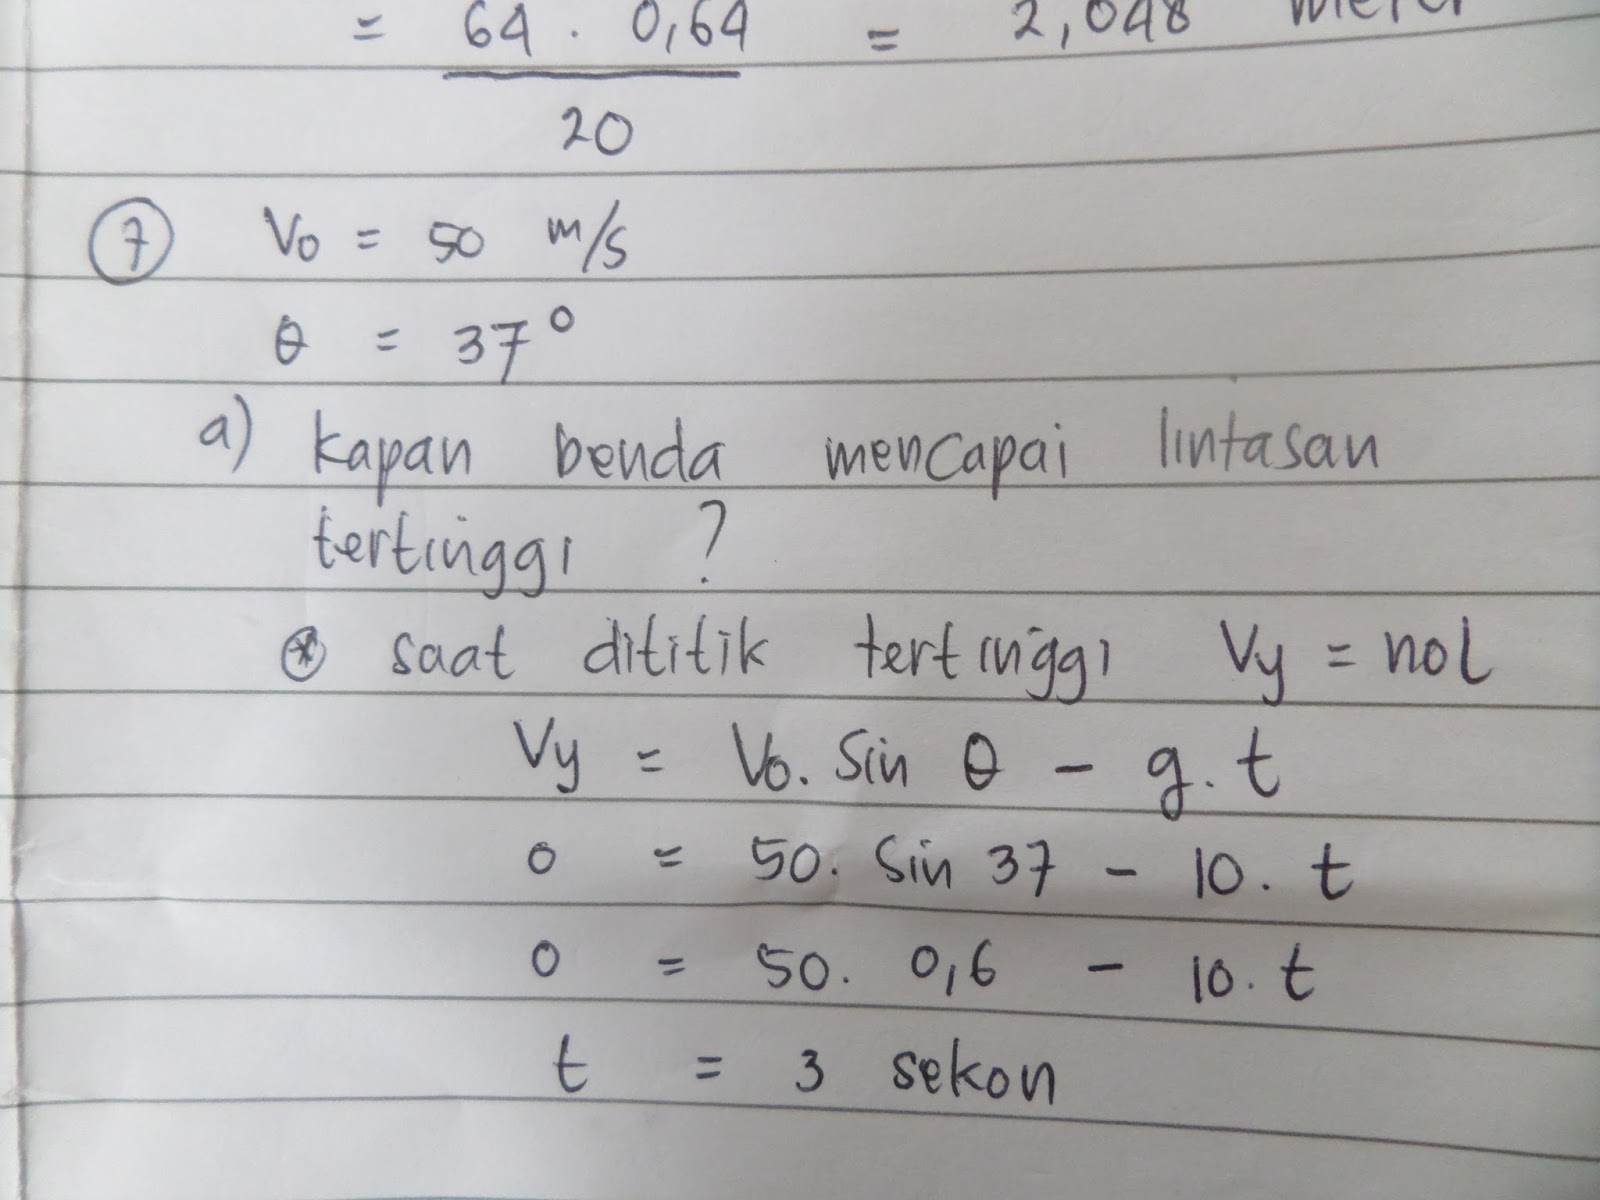 = 64 . 0,64 = 2,048 meter
20
7 Vo = 50 m/s
θ = 37°
a) kapan benda mencapai lintasan
tertinggi ?
* saat dititik tertinggi Vy = nol
Vy = Vo. Sin θ - g. t
0 = 50. Sin 37 - 10. t
0 = 50. 0,6 - 10. t
t = 3 sekon